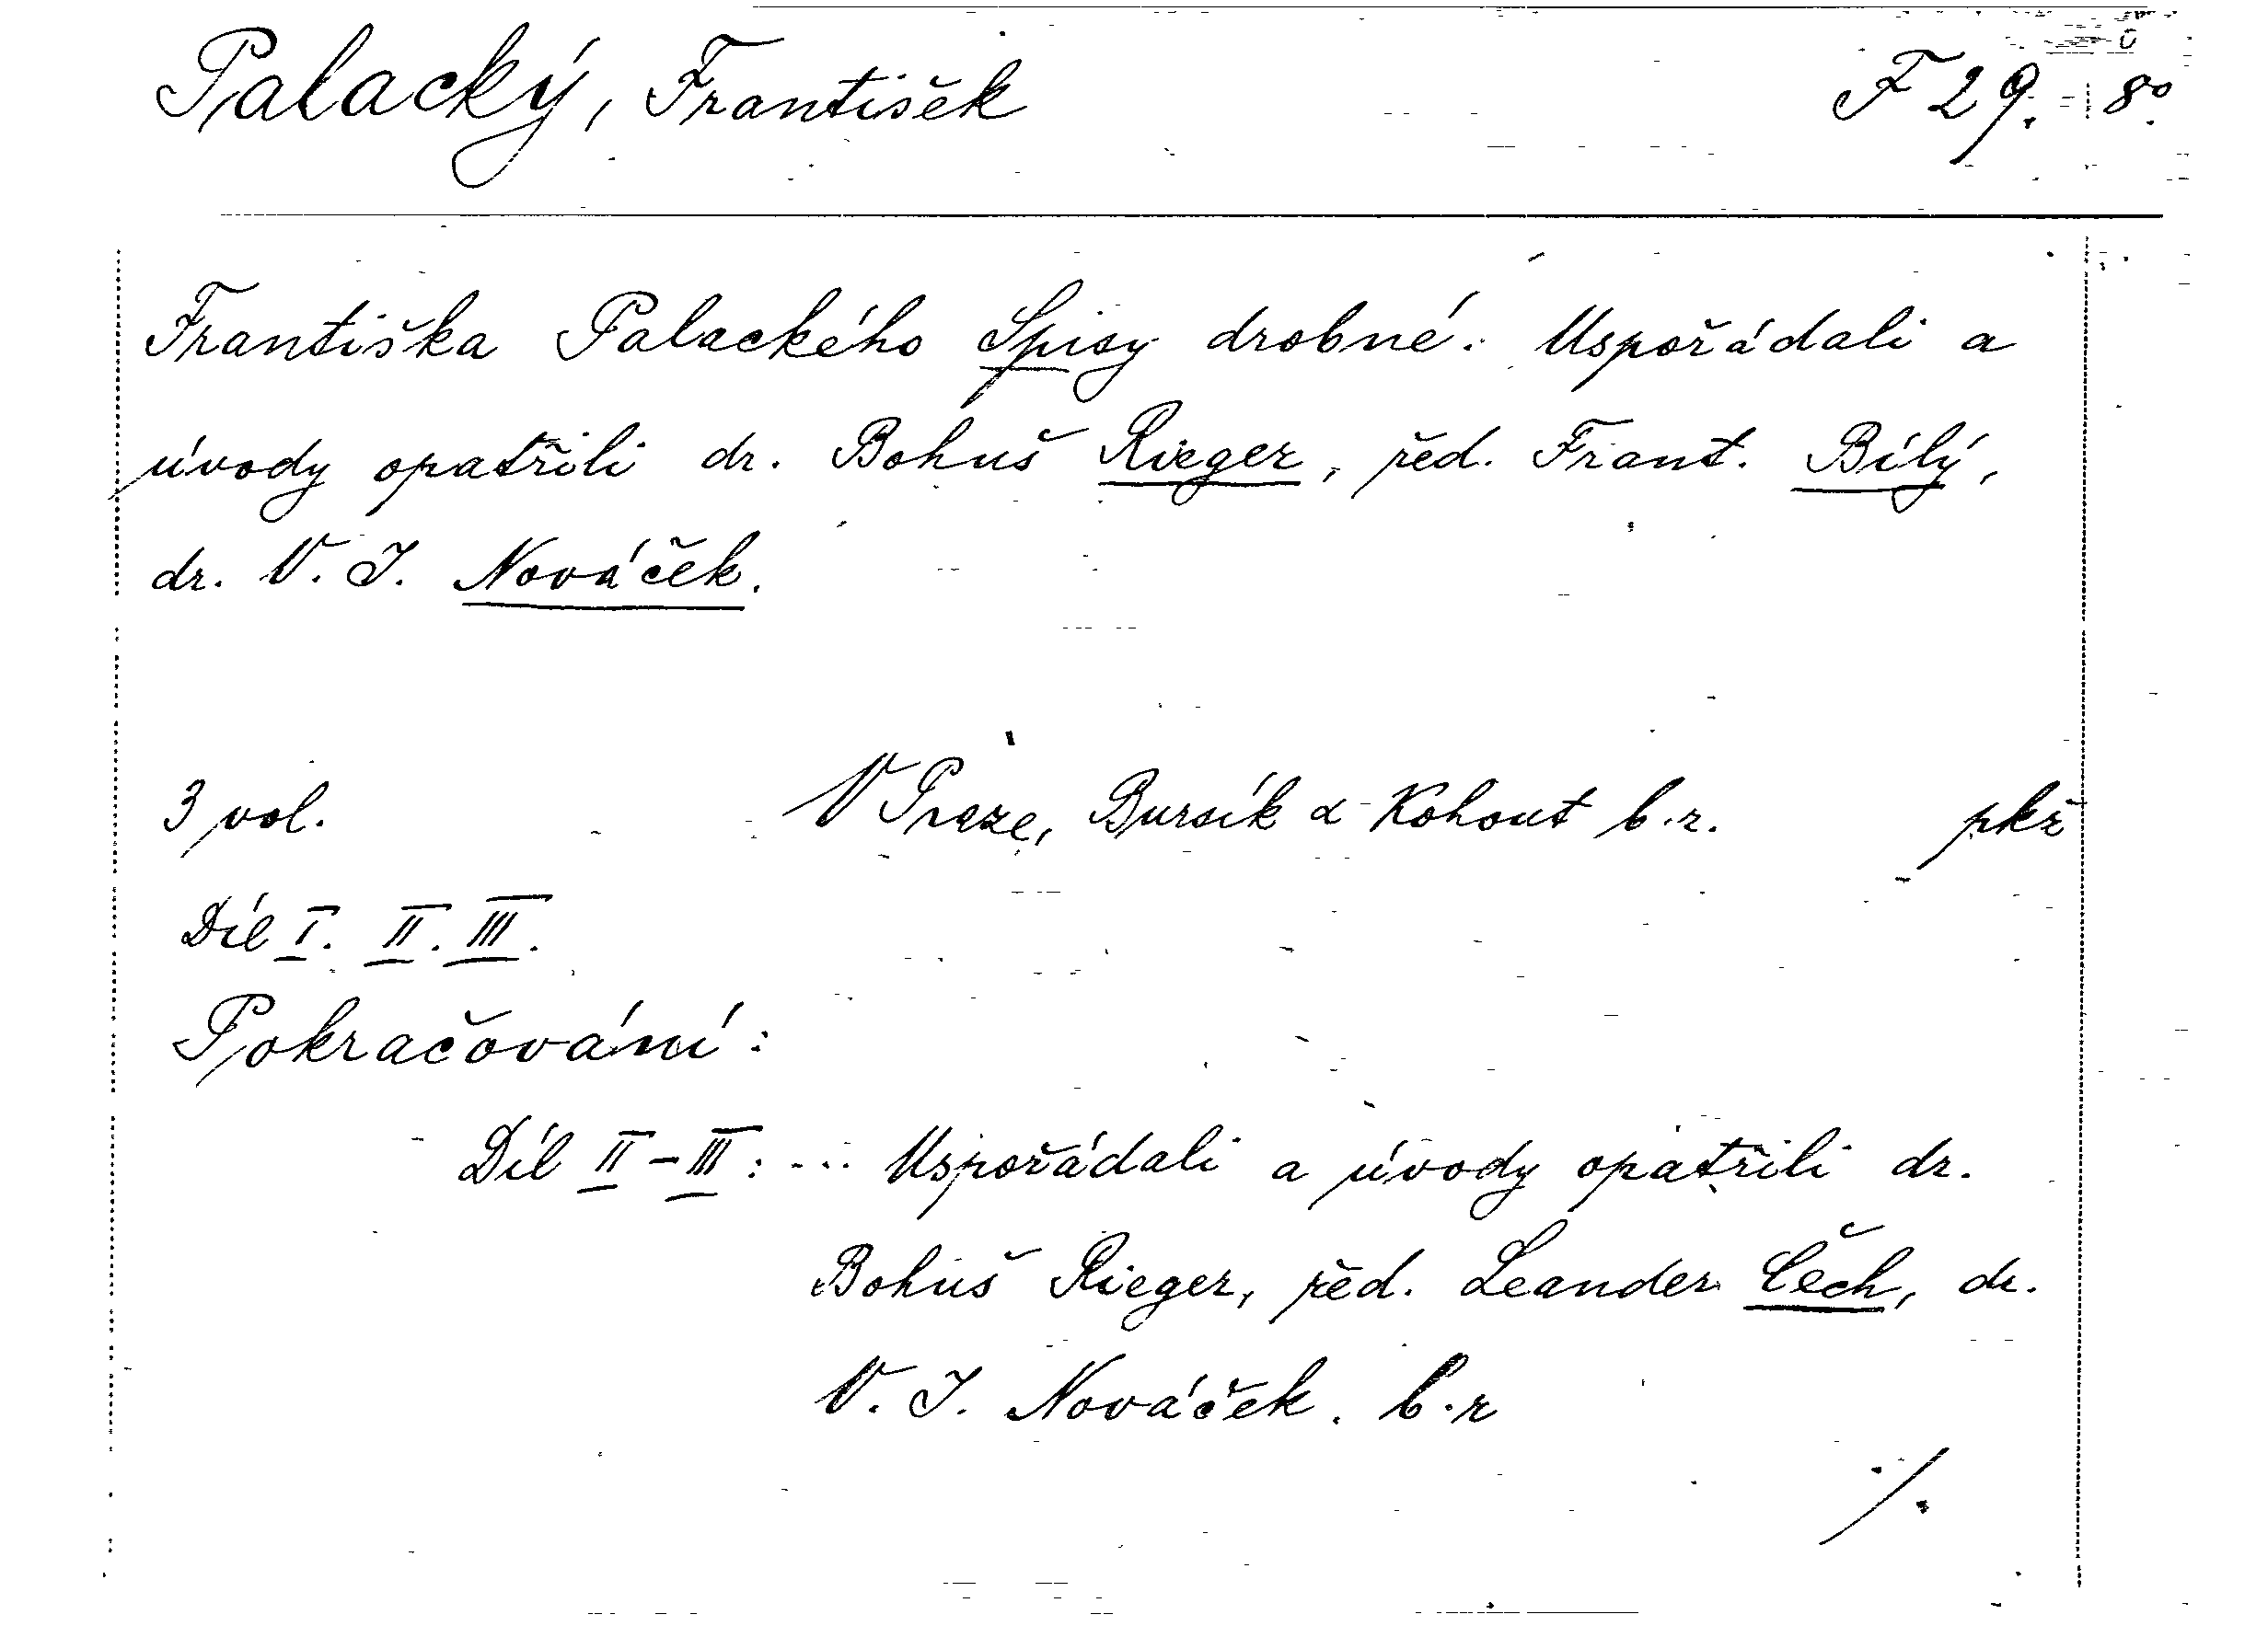 Palacký, František F 29. 8º.
Františka Palackého Spisy drobné. Uspořádali a
úvody opatřili dr. Bohuš Rieger, řed. Frant. Bílý,
dr. V. J. Nováček.
3 vol. V Praze, Bursík & Kohout b.r. pkř
Díl I. II. III.
Pokračování:
Díl II-III: ... Uspořádali a úvody opatřili dr.
Bohuš Rieger, řed. Leander Čech, dr.
V. J. Nováček. b.r
./.